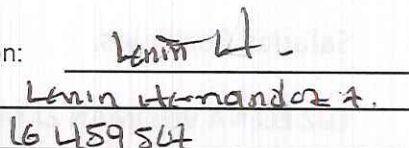 n: Lenin H-
Lenin Hernandez A.
16459507